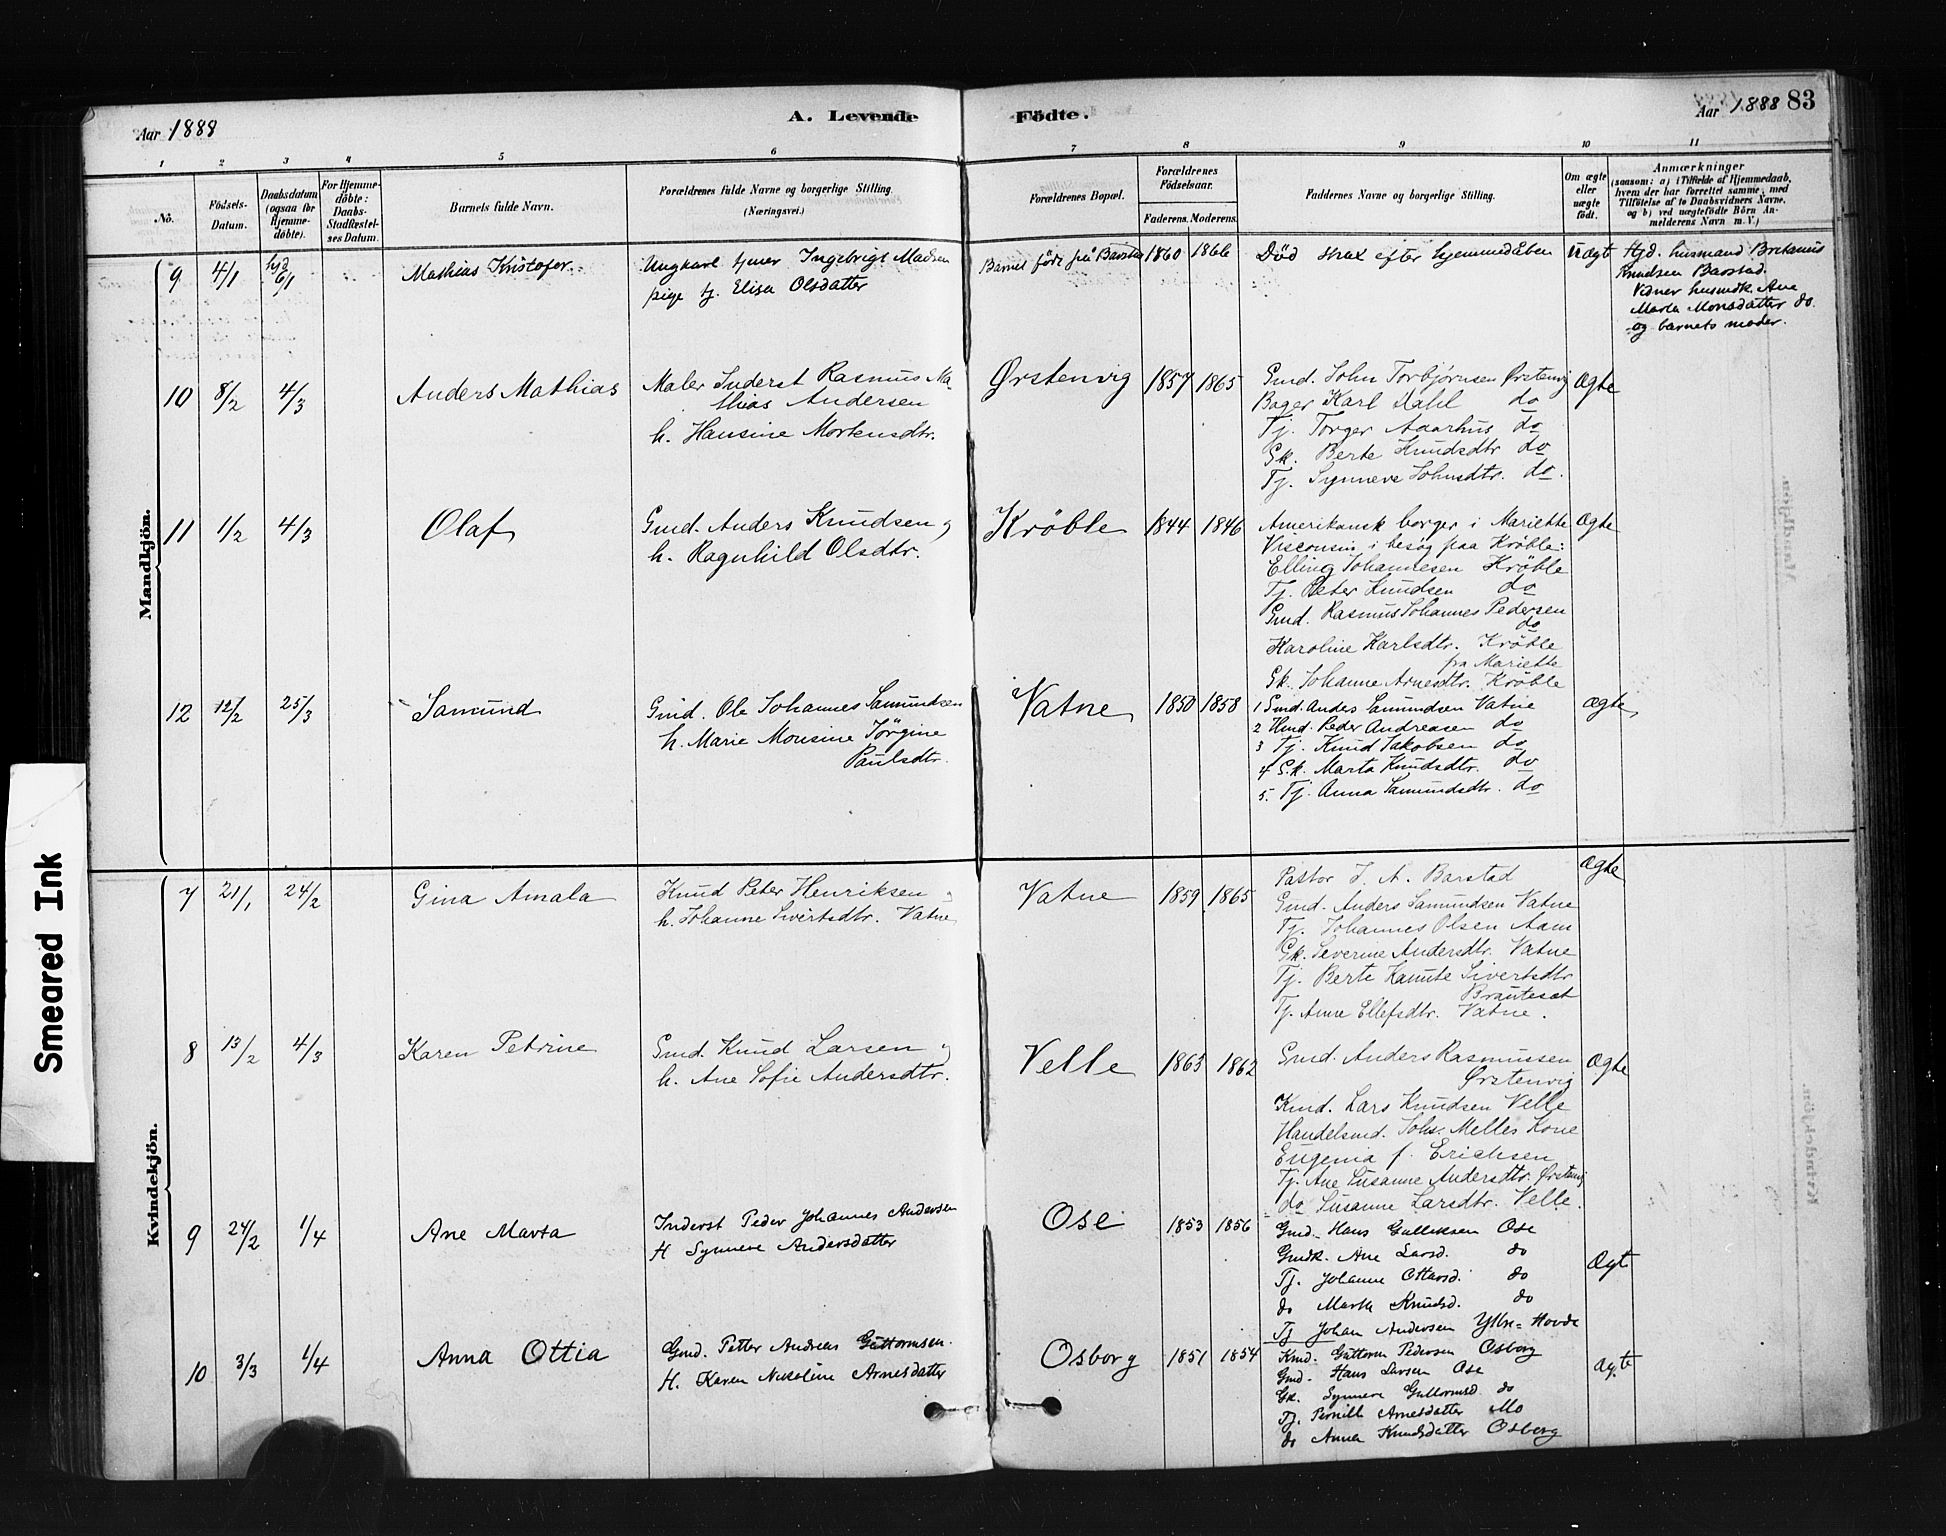 Aar 1888
A. Levende
Födte.
Aar 1888 83
1 2 3 4 5 6 7 8 9 10 11
No.
Födsels-
Datum.
Daabsdatum
(ogsaa for
Hjemme-
döbte).
For Hjemme-
döbte:
Daabs-
Stadfæstel-
ses Datum.
Barnets fulde Navn.
Forældrenes fulde Navne og borgerlige Stilling.
(Næringsvei.)
Forældrenes Bopæl.
Forældrenes
Födselsaar.
Faderens. Moderens.
Faddernes Navne og borgerlige Stilling.
Om ægte
eller
uægte
födt.
Anmærkninger
(saasom: a) i Tilfælde af Hjemmedaab,
hvem der har forrettet samme, med
Tilföielse af to Daabsvidners Navne,
og b) ved uægtefödte Börn An-
melderens Navn m. V.)
Mandkjön.
9 4/1 hjd 6/1 Mathias Kristofer.
Ungkarl tjener Ingebrigt Madsen
pige tj. Elisa Olsdatter
Barnet født på Barstad 1860 1866
Død strax efter hjemmedåben
Uægt
Hjd. husmand Bretanus
Knudsen Barstad.
Vidner husmdk. Ane
Marta Monsdatter do.
og barnets moder.
10 8/2 4/3 Anders Mathias
Maler Inderst Rasmus Ma-
thias Andersen
h. Hansine Mortensdtr.
Ørstenvig 1857 1865
Gmd. John Torbjørnsen Ørstenvig
Bager Karl Dahl do
Tj. Torger Aaarhus do
Gk. Berte Knudsdtr do
Tj. Synneve Johnsdtr. do.
Ægte
11 1/2 4/3 Olaf
Gmd. Anders Knudsen og
h. Ragnhild Olsdtr.
Krøble 1844 1846
Amerikansk borger i Mariette
Visconsin, i besøg paa Krøble:
Elling Johannesen Krøble
Tj. Peter Knudsen do
Gmd. Rasmus Johannes Pedersen
do
Karoline Karlsdtr. Krøble
fra Mariette
Gk. Johanne Arnesdtr. Krøble
Ægte
12 12/2 25/3 Samund
Gmd. Ole Johannes Samundsen
h. Marie Monsine Jørgine
Paulsdtr.
Vatne 1850 1858
1 Gmd. Anders Samundsen Vatne
2 Hmd. Peder Andreasen do
3 Tj. Knud Jakobsen do
4 Gk. Marta Knudsdtr. do
5. Tj. Anna Samundsdtr. do
Ægte
Kvindekjön.
7 21/1 24/2 Gina Amala
Knud Peter Henriksen og
h. Johanne Sivertsdtr. Vatne
Vatne 1859 1865
Pastor J. A. Barstad
Gmd. Anders Samundsen Vatne
Tj. Johannes Olsen Aam
Gk. Severine Andersdtr. Vatne
Tj. Berte Kanute Sivertsdtr
Brauteset
Tj. Anne Ellefsdtr. Vatne.
Ægte
8 13/2 4/3 Karen Petrine
Gmd. Knud Larsen og
h. Ane Sofie Andersdtr.
Velle 1863 1862
Gmd. Anders Rasmussen
Ørstenvig
Kmd. Lars Knudsen Velle
Handelsmd. Johs. Melles Kone
Eugenia f. Erichsen
Tj. Ane Susanne Andersdtr. Ørstenvig
do Susanne Larsdtr. Velle.
Ægte
9 24/2 1/4 Ane Marta
Inderst Peder Johannes Andersen
H Synneve Andersdatter
Ose 1853 1856
Gmd. Hans Gulleksen Ose
Gmdk. Ane Larsd. do
Tj. Johanne Ottarsd. do
do Marta Knudsd. do
Tj Johan Andersen Ytre-Hovde
Ægt
10 3/3 1/4 Anna Ottia
Gmd. Petter Andreas Guttormsen.
H. Karen Nikoline Arnesdatter
Osborg 1851 1854
Kmd. Guttorm Pedersen Osborg
Gmd. Hans Larsen Ose
Gk. Synneve Guttormsd. do
Tj. Pernille Arnesdatter Mo
do Anna Knudsdatter Osborg
Ægte
Smeared Ink